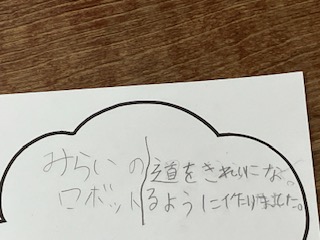 みらいの
ロボット
道をきれいにな
るように作りました。